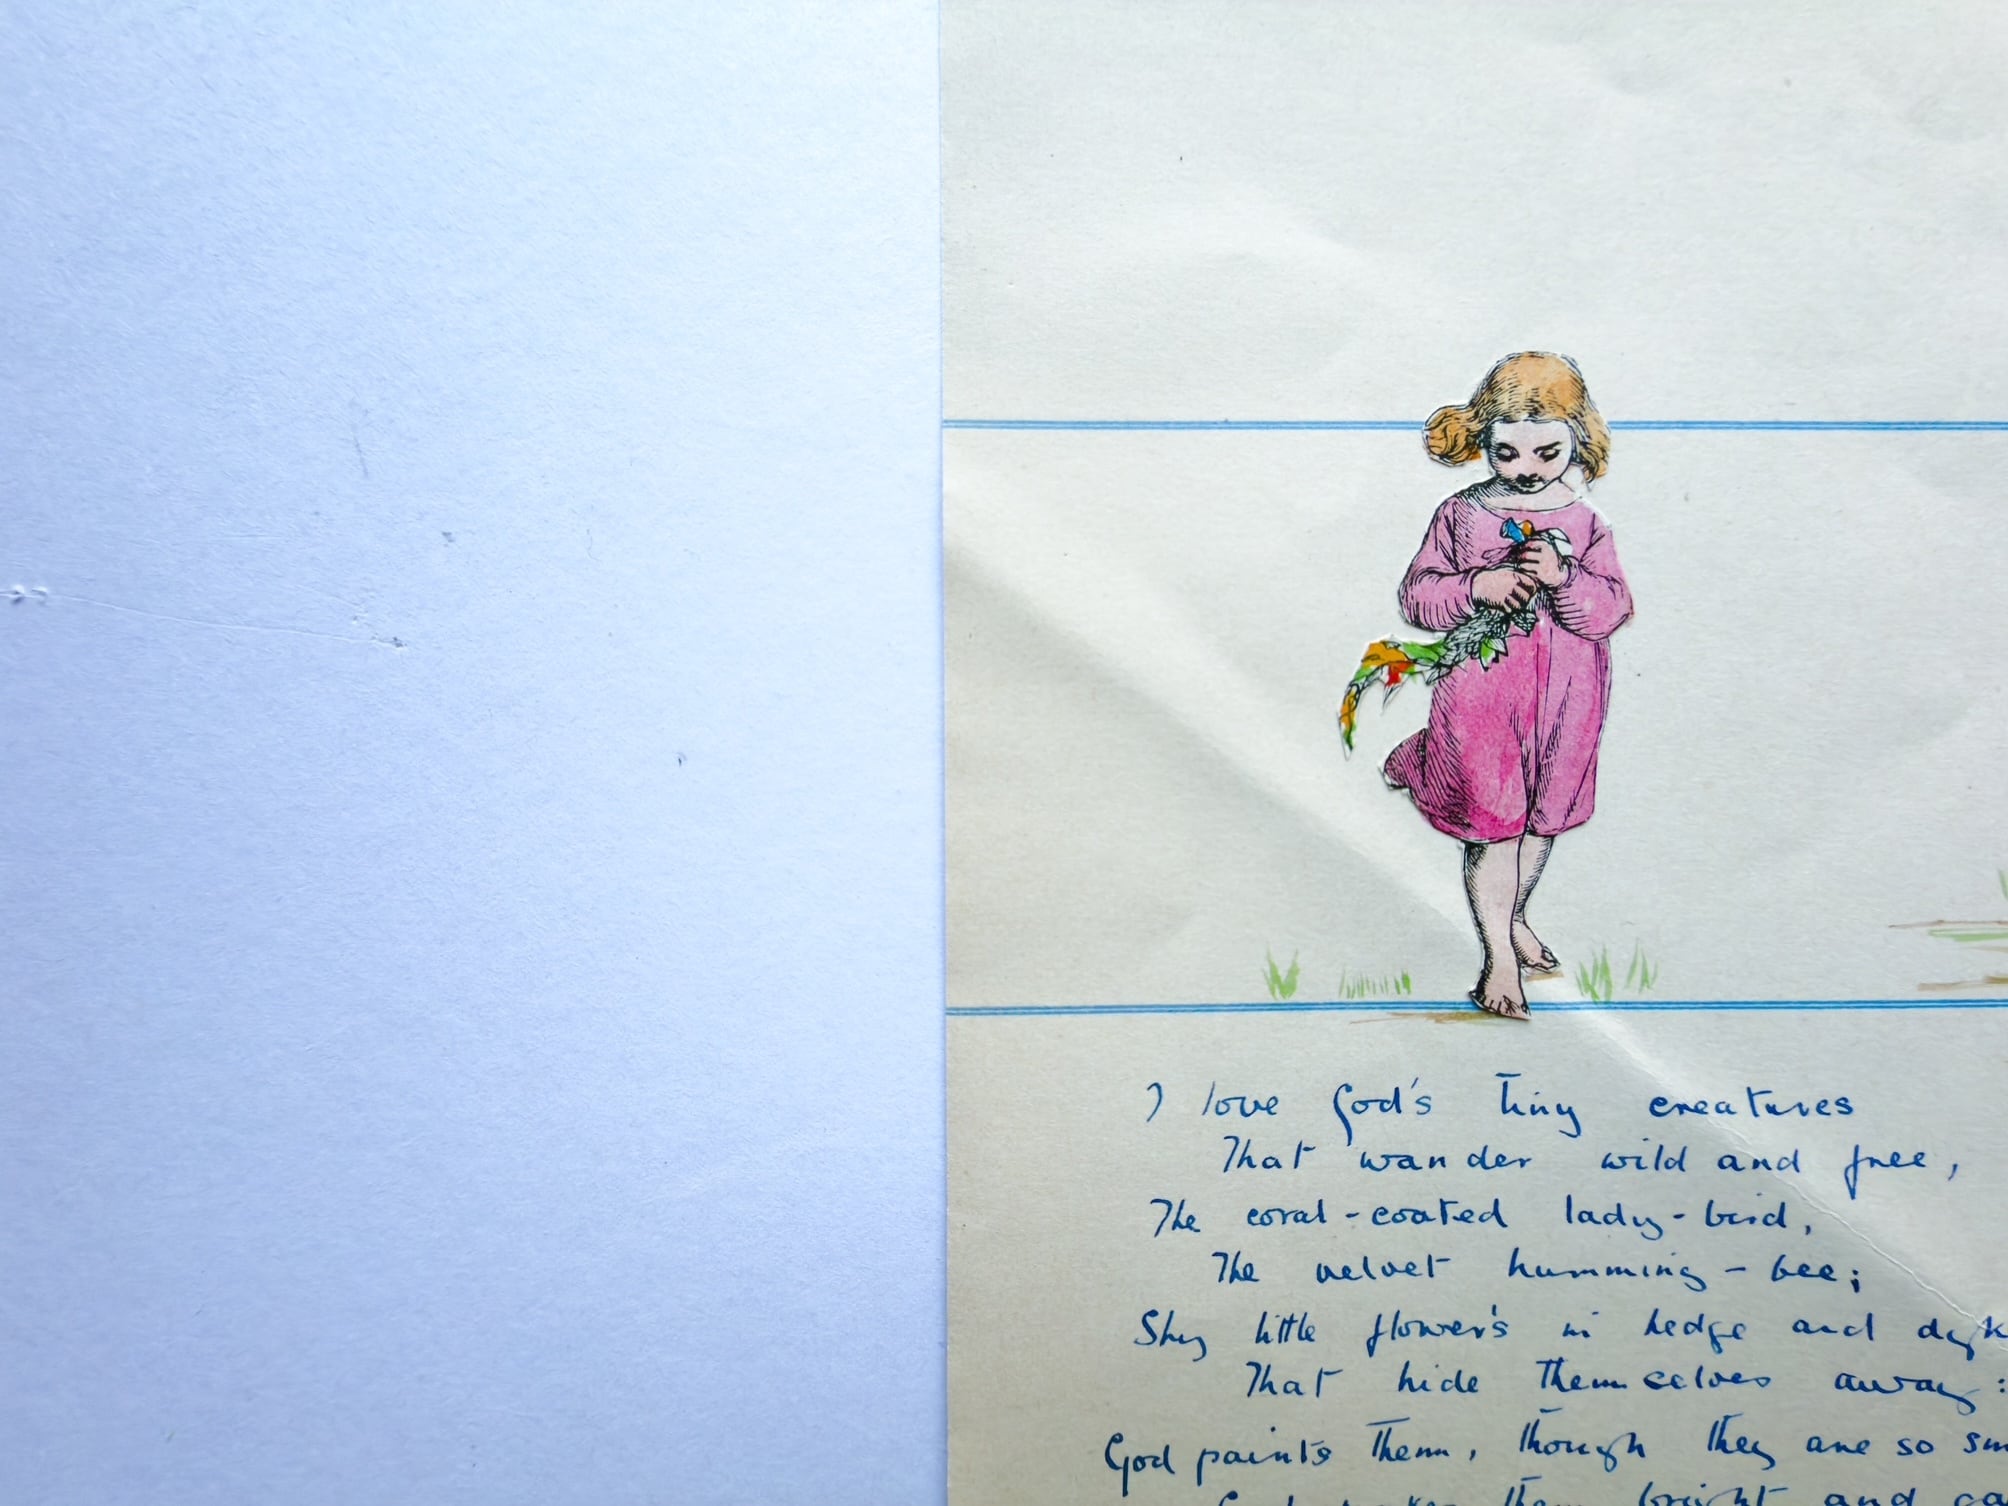 I love God's tiny creatures
That wander wild and free,
The coral-coated lady-bird,
The velvet humming-bee;
Shy little flower's in hedge and dyk
That hide themselves away:
God paints them, though they are so sm
God makes them bright and ga